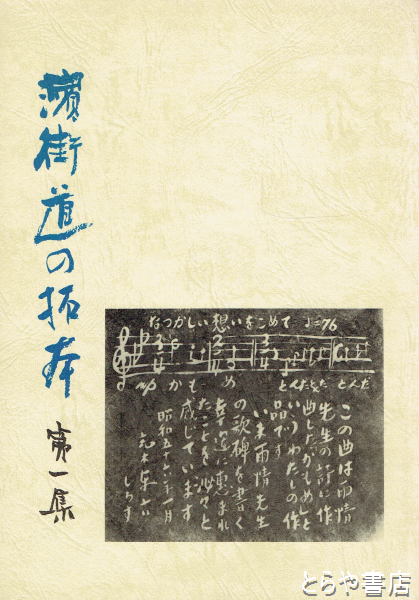 濱街道の拓本
第一集
なつかしい想いをこめて ♩=76
mp かもめ とんだとた とんだ
この曲は雨情
先生の詩に作
曲したかもめと
いうわたしの作
品です
いま雨情先生
の歌碑を書く
幸運に恵まれ
たことを沁々と
感じています
昭和五十六年一月
しるす
とらや書店